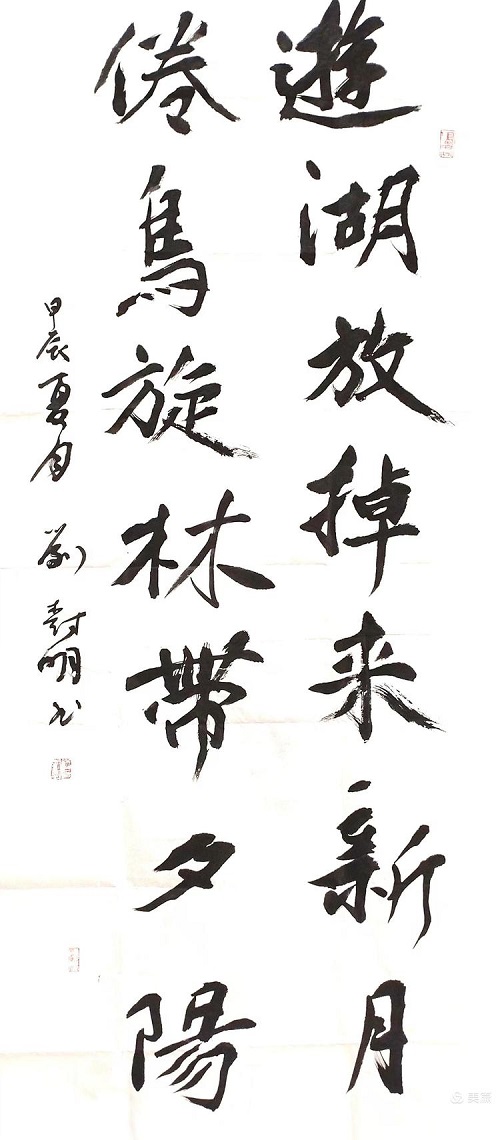 遊湖放掉来新月
倦鳥旋林帶夕陽
甲辰夏月 劉封明书
美篇